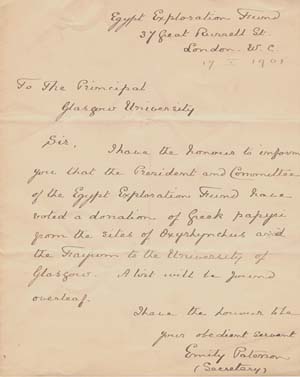 Egypt Exploration Fund
37 Great Russell St.
London. W. C
17 X 1901
To The Principal
Glasgow University
Sir.
I have the honour to inform
you that the President and Committee
of the Egypt Exploration Fund have
voted a donation of Greek papyri
from the sites of Oxyrhynchus and
the Fayum to the University of
Glasgow. A list will be found
overleaf.
I have the honour to be
your obedient servant
Emily Paterson
(Secretary)